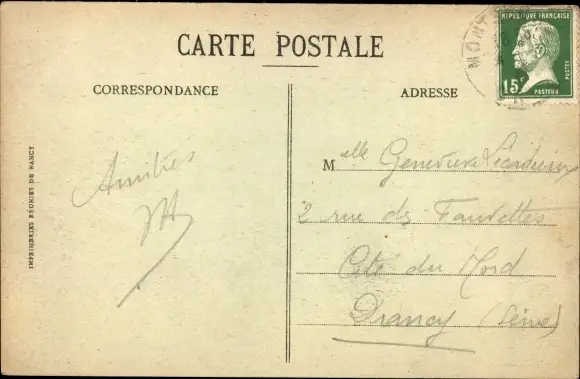 CARTE POSTALE
CORRESPONDANCE
ADRESSE
REPUBLIQUE FRANÇAISE
15c
POSTES
PASTEUR
MONT
IMPRIMERIES RÉUNIES DE NANCY
Amitiés
Melle Geneviève
2 rue des Fauvettes
Cité du Nord
Drancy (Seine)